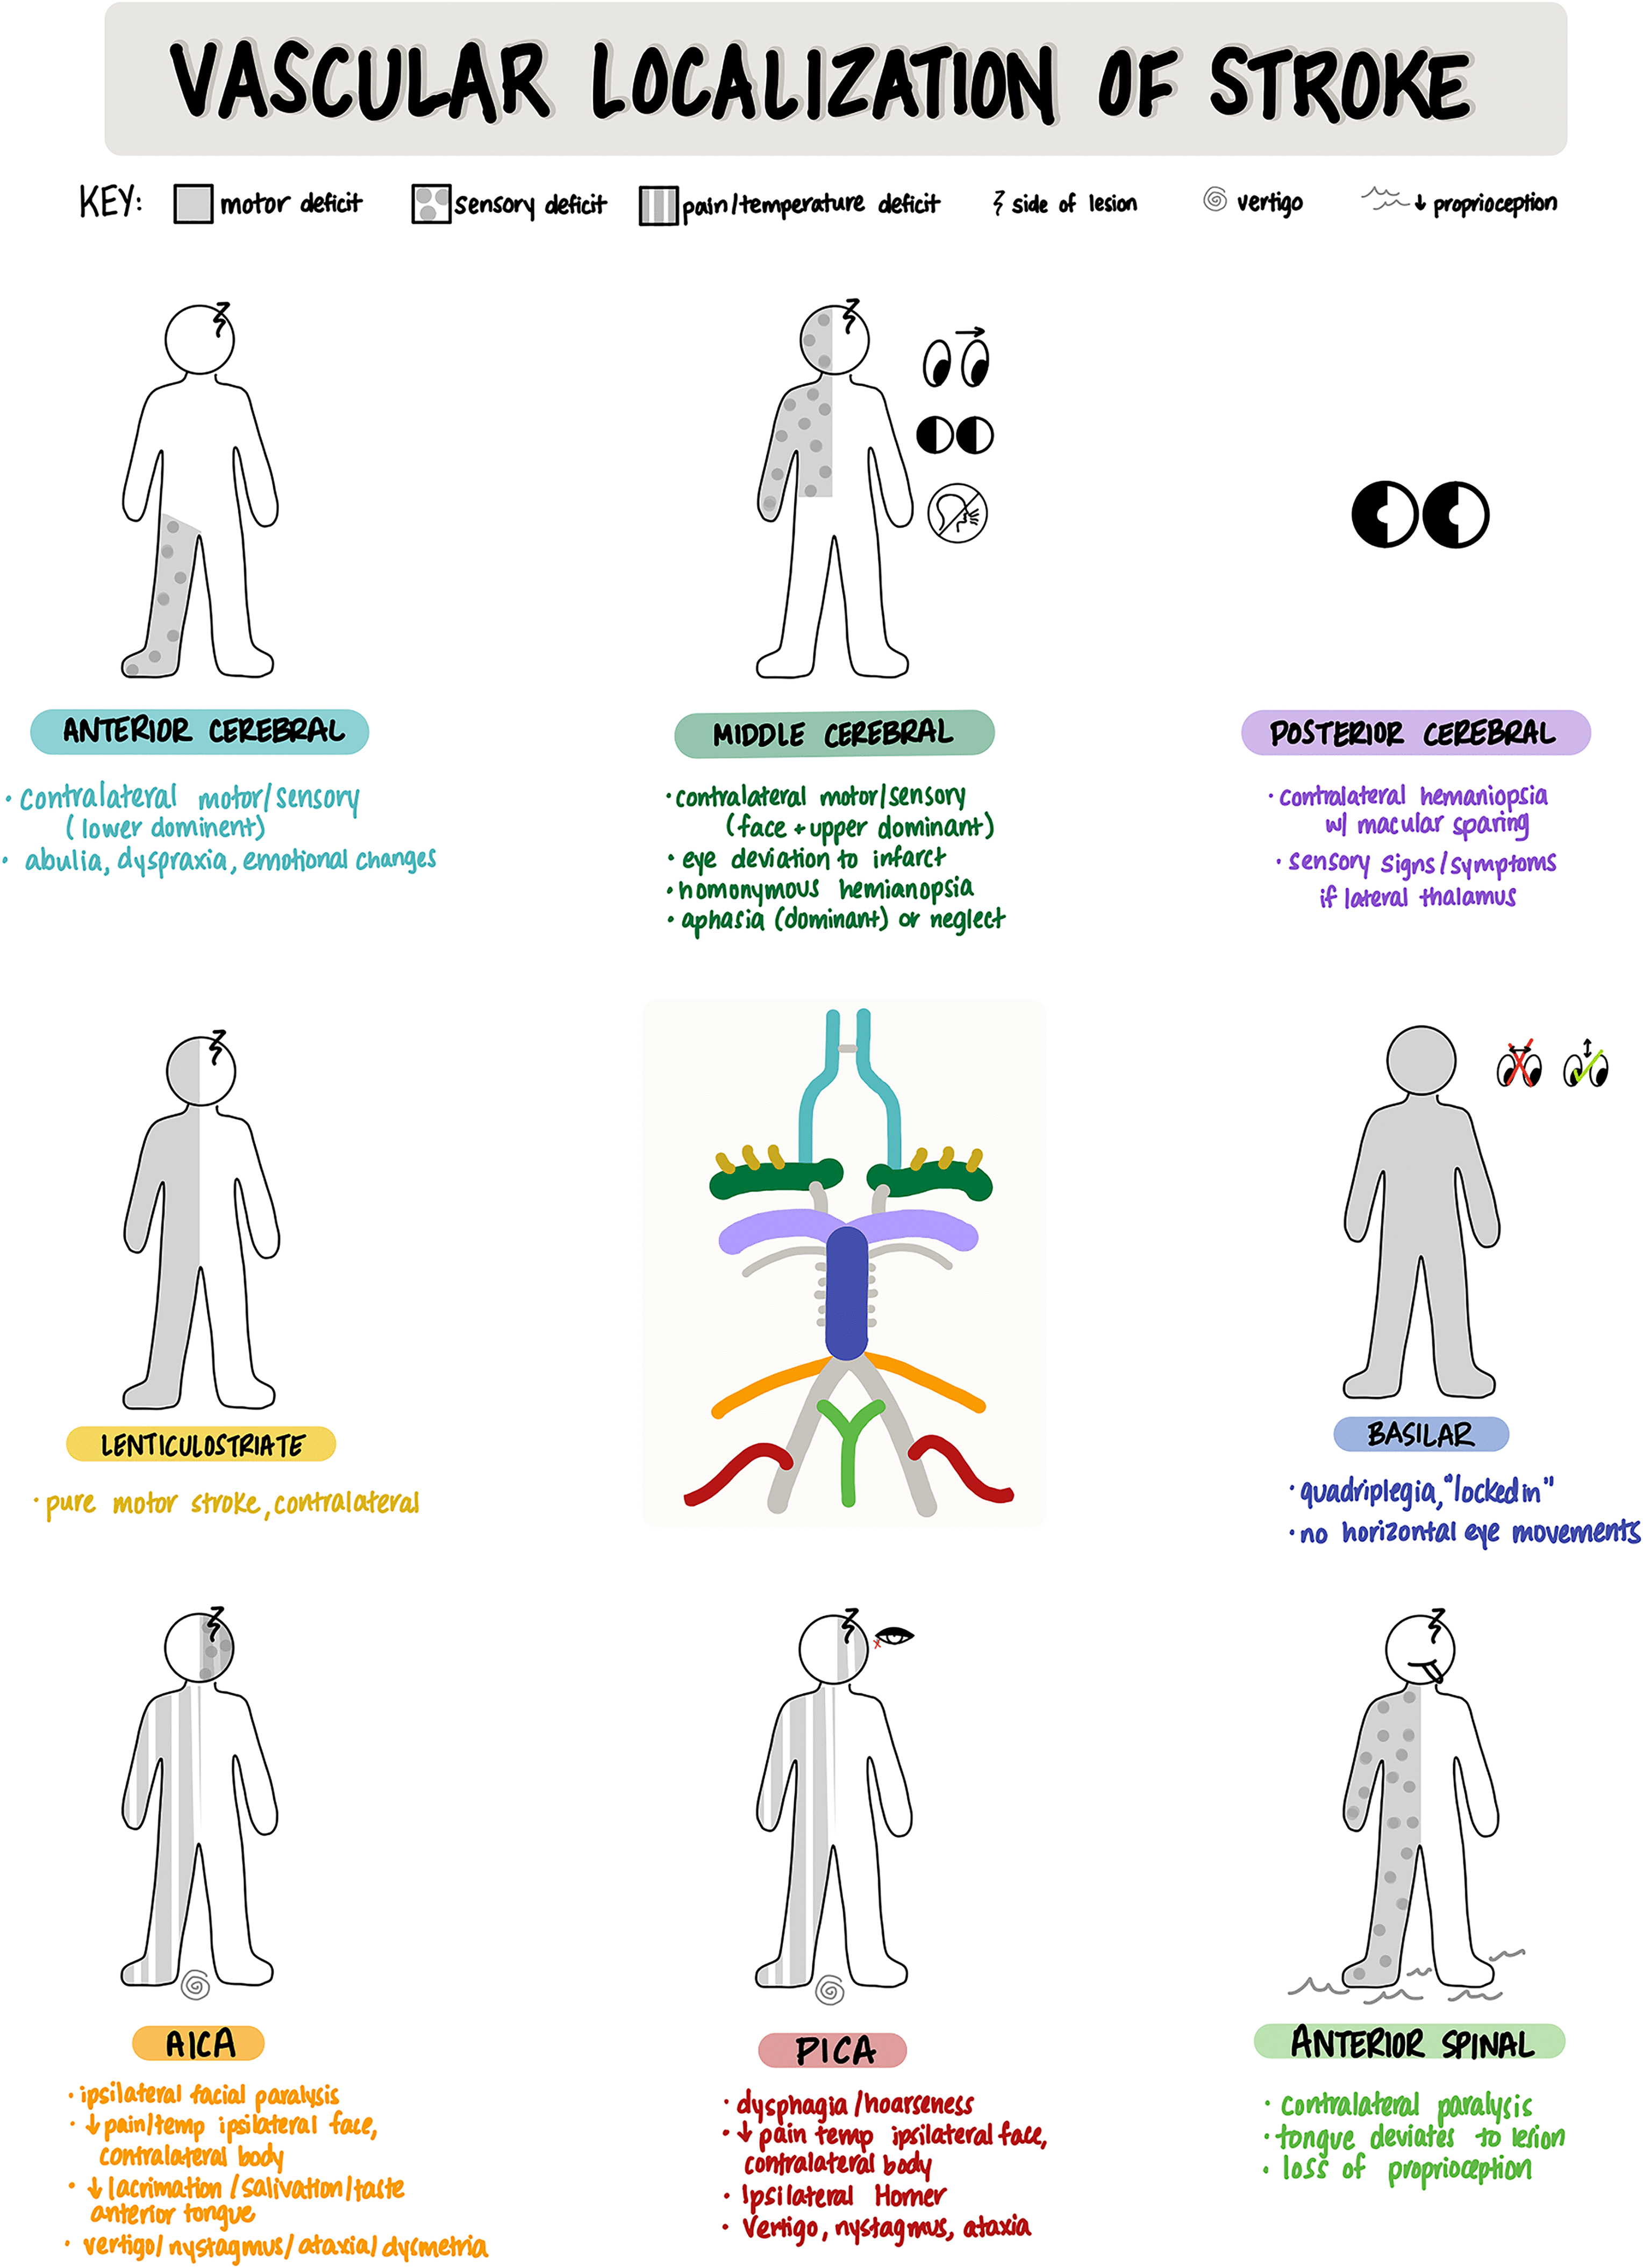 VASCULAR LOCALIZATION OF STROKE
KEY: motor deficit sensory deficit pain/temperature deficit side of lesion vertigo ↓ proprioception
ANTERIOR CEREBRAL
• contralateral motor/sensory
(lower dominent)
• abulia, dyspraxia, emotional changes
MIDDLE CEREBRAL
• contralateral motor/sensory
(face + upper dominant)
• eye deviation to infarct
• homonymous hemianopsia
• aphasia (dominant) or neglect
POSTERIOR CEREBRAL
• contralateral hemaniopsia
w/ macular sparing
• sensory signs/symptoms
if lateral thalamus
LENTICULOSTRIATE
• pure motor stroke, contralateral
BASILAR
• quadriplegia, "locked in"
• no horizontal eye movements
AICA
• ipsilateral facial paralysis
• ↓ pain/temp ipsilateral face,
contralateral body
• ↓ lacrimation/salivation/taste
anterior tongue
• vertigo/nystagmus/ataxia/dysmetria
PICA
• dysphagia/hoarseness
• ↓ pain temp ipsilateral face,
contralateral body
• Ipsilateral Horner
• Vertigo, nystagmus, ataxia
ANTERIOR SPINAL
• contralateral paralysis
• tongue deviates to lesion
• loss of proprioception